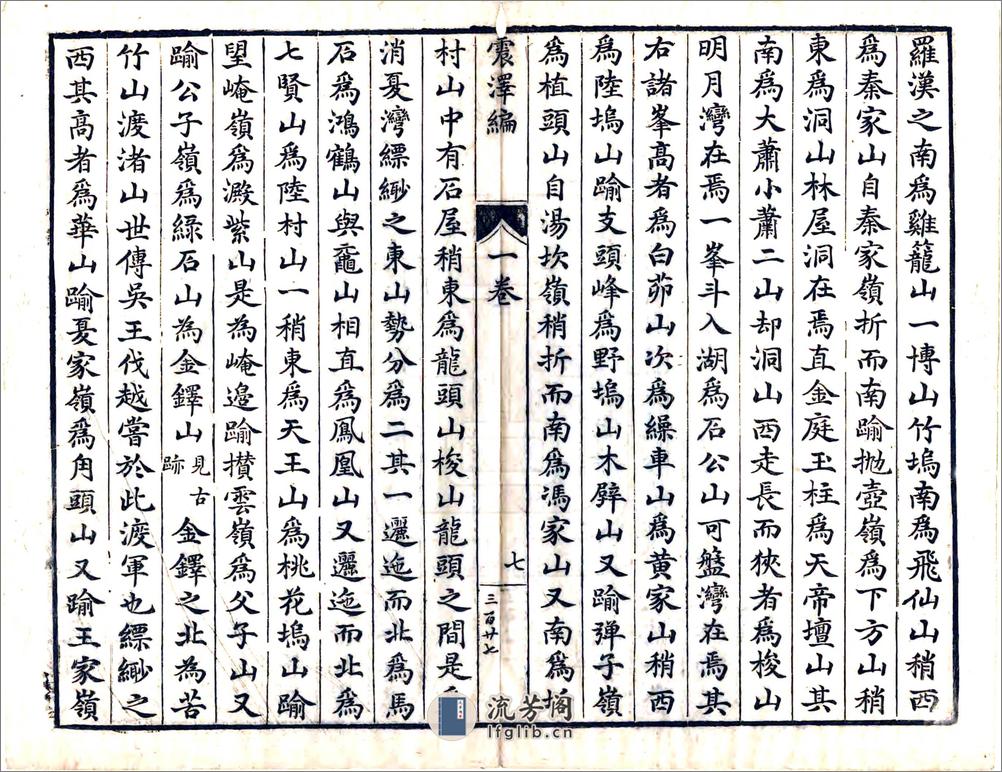 羅漢之南為雞籠山一博山竹塢南為飛仙山稍西
為秦家山自秦家嶺折而南踰抛壺嶺為下方山稍
東為洞山林屋洞在焉直金庭玉柱為天帝壇山其
南為大蕭小蕭二山却洞山西走長而狹者為梭山
明月灣在焉一峯斗入湖為石公山可盤灣在焉其
右諸峯高者為白茆山次為繰車山為黄家山稍西
為陸塢山踰支頭峰為野塢山木壁山又踰弹子嶺
為植頭山自湯坎嶺稍折而南為馮家山又南為
震澤編
一卷
七
三百廿七
村山中有石屋稍東為龍頭山梭山龍頭之間是
消憂灣縹緲之東山勢分為二其一邐迤而北為馬
石為鴻鶴山與鼉山相直為鳳凰山又邐迤而北為
七賢山為陸村山一稍東為天王山為桃花塢山踰
望崦嶺為澱紫山是為崦邉踰攅雲嶺為父子山又
踰公子嶺為緑石山為金鐸山見古跡金鐸之北為苦
竹山渡渚山世傳吳王伐越嘗於此渡軍也縹緲之
西其高者為華山踰憂家嶺為甪頭山又踰王家嶺
流芳阁
lfglib.cn